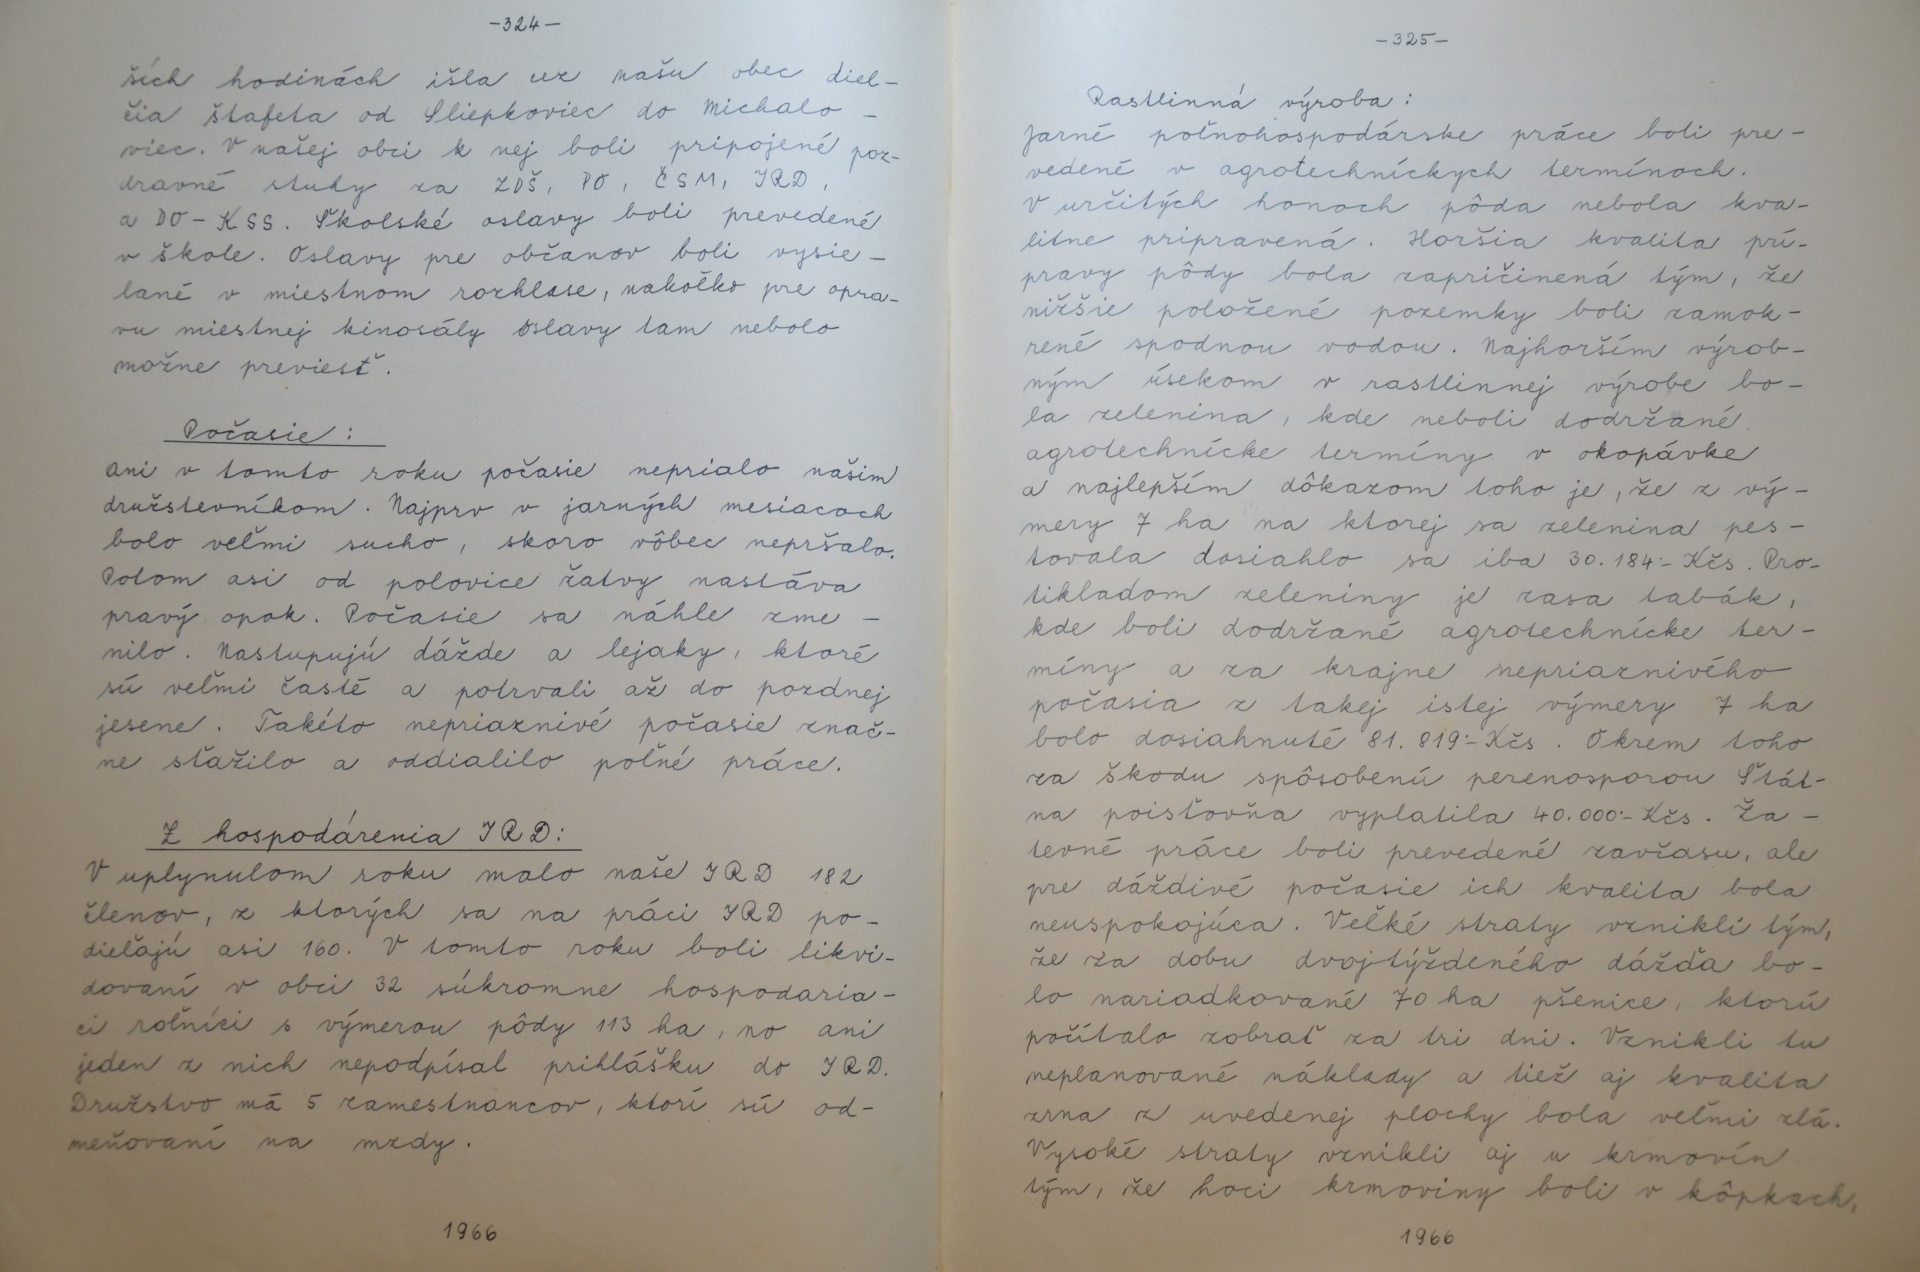 -324-
ších hodinách išla cez našu obec diel-
čia štafeta od Sliepkoviec do Michalo-
viec. V našej obci k nej boli pripojené poz-
dravné stuhy za ZDŠ, PO, ČSM, JRD,
a DO-KSS. Školské oslavy boli prevedené
v škole. Oslavy pre občanov boli vysie-
lané v miestnom rozhlase, nakoľko pre opra-
vu miestnej kinosály oslavy tam nebolo
možne previesť.
Počasie:
Ani v tomto roku počasie neprialo našim
družstevníkom. Najprv v jarných mesiacoch
bolo veľmi sucho, skoro vôbec nepršalo.
Potom asi od polovice žatvy nastáva
pravý opak. Počasie sa náhle zme-
nilo. Nastupujú dážde a lejaky, ktoré
sú veľmi časté a potrvali až do pozdnej
jesene. Takéto nepriaznivé počasie znač-
ne sťažilo a oddialilo poľné práce.
Z hospodárenia JRD:
V uplynulom roku malo naše JRD 182
členov, z ktorých sa na práci JRD po-
dieľajú asi 160. V tomto roku boli likvi-
dovaní v obci 32 súkromne hospodaria-
ci roľníci s výmerou pôdy 113 ha, no ani
jeden z nich nepodpísal prihlášku do JRD.
Družstvo má 5 zamestnancov, ktorí sú od-
meňovaní na mzdy.
1966
-325-
Rastlinná výroba:
Jarné poľnohospodárske práce boli pre-
vedené v agrotechníckych termínoch.
V určitých honoch pôda nebola kva-
litne pripravená. Horšia kvalita prí-
pravy pôdy bola zapričinená tým, že
nižšie položené pozemky boli zamok-
rené spodnou vodou. Najhorším výrob-
ným úsekom v rastlinnej výrobe bo-
la zelenina, kde neboli dodržané
agrotechnícke termíny v okopávke
a najlepším dôkazom toho je, že z vý-
mery 7 ha na ktorej sa zelenina pes-
tovala dosiahlo sa iba 30.184.- Kčs. Pro-
tikladom zeleniny je zasa tabák,
kde boli dodržané agrotechnícke ter-
míny a za krajne nepriaznivého
počasia z takej istej výmery 7 ha
bolo dosiahnuté 81.819.- Kčs. Okrem toho
za škodu spôsobenú perenosporou Štát-
na poisťovňa vyplatila 40.000.- Kčs. Ža-
tevné práce boli prevedené zavčasu, ale
pre dáždivé počasie ich kvalita bola
neuspokojúca. Veľké straty vznikli tým,
že za dobu dvojtýždeného dážďa bo-
lo nariadkované 70 ha pšenice, ktorú
počítalo zobrať za tri dni. Vznikli tu
neplanované náklady a tiež aj kvalita
zrna z uvedenej plochy bola veľmi zlá.
Vysoké straty vznikli aj u krmovín
tým, že hoci krmoviny boli v kôpkach,
1966